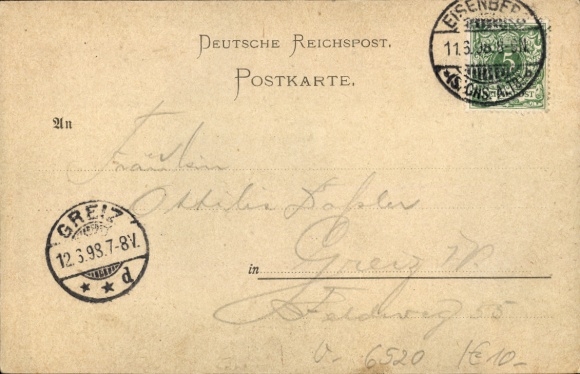 DEUTSCHE REICHSPOST.
POSTKARTE.
EISENBERG
11.6.98.
5
An
Fräulein
Ottilie Dassler
GREIZ
12.6.98.7-8V.
d
in Greiz
Feldweg 55
6520 €10.-